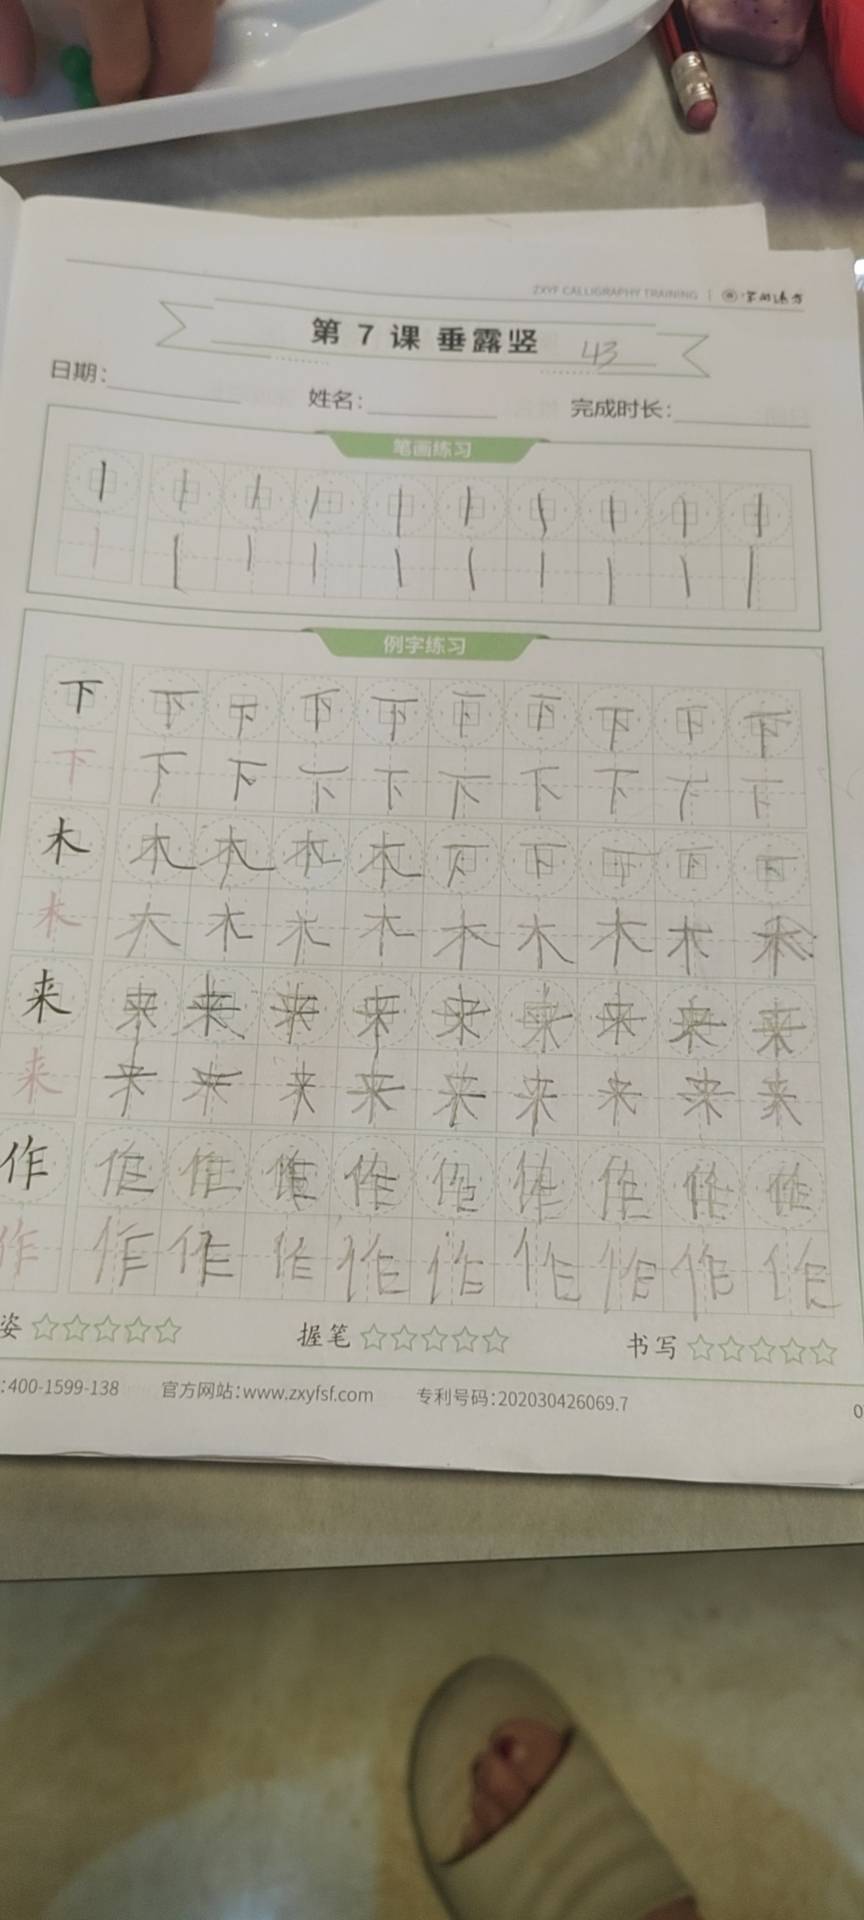 ZXYF CALLIGRAPHY TRAINING
第 7 课 垂露竖 43
日期： 姓名： 完成时长：
笔画练习
例字练习
下 下 下 下 下 下 下 下 下 下
下 下 下 下 下 下 下 下 下 下
木 木 木 木 木 下 下 下 下 下
木 木 木 木 木 木 木 木 木 木
来 来 来 来 来 来 来 来 来 来
来 来 来 来 来 来 来 来 来 来
作 作 作 作 作 作 作 作 作 作
作 作 作 作 作 作 作 作 作 作
姿 握笔 书写
:400-1599-138 官方网站：www.zxyfsf.com 专利号码：202030426069.7